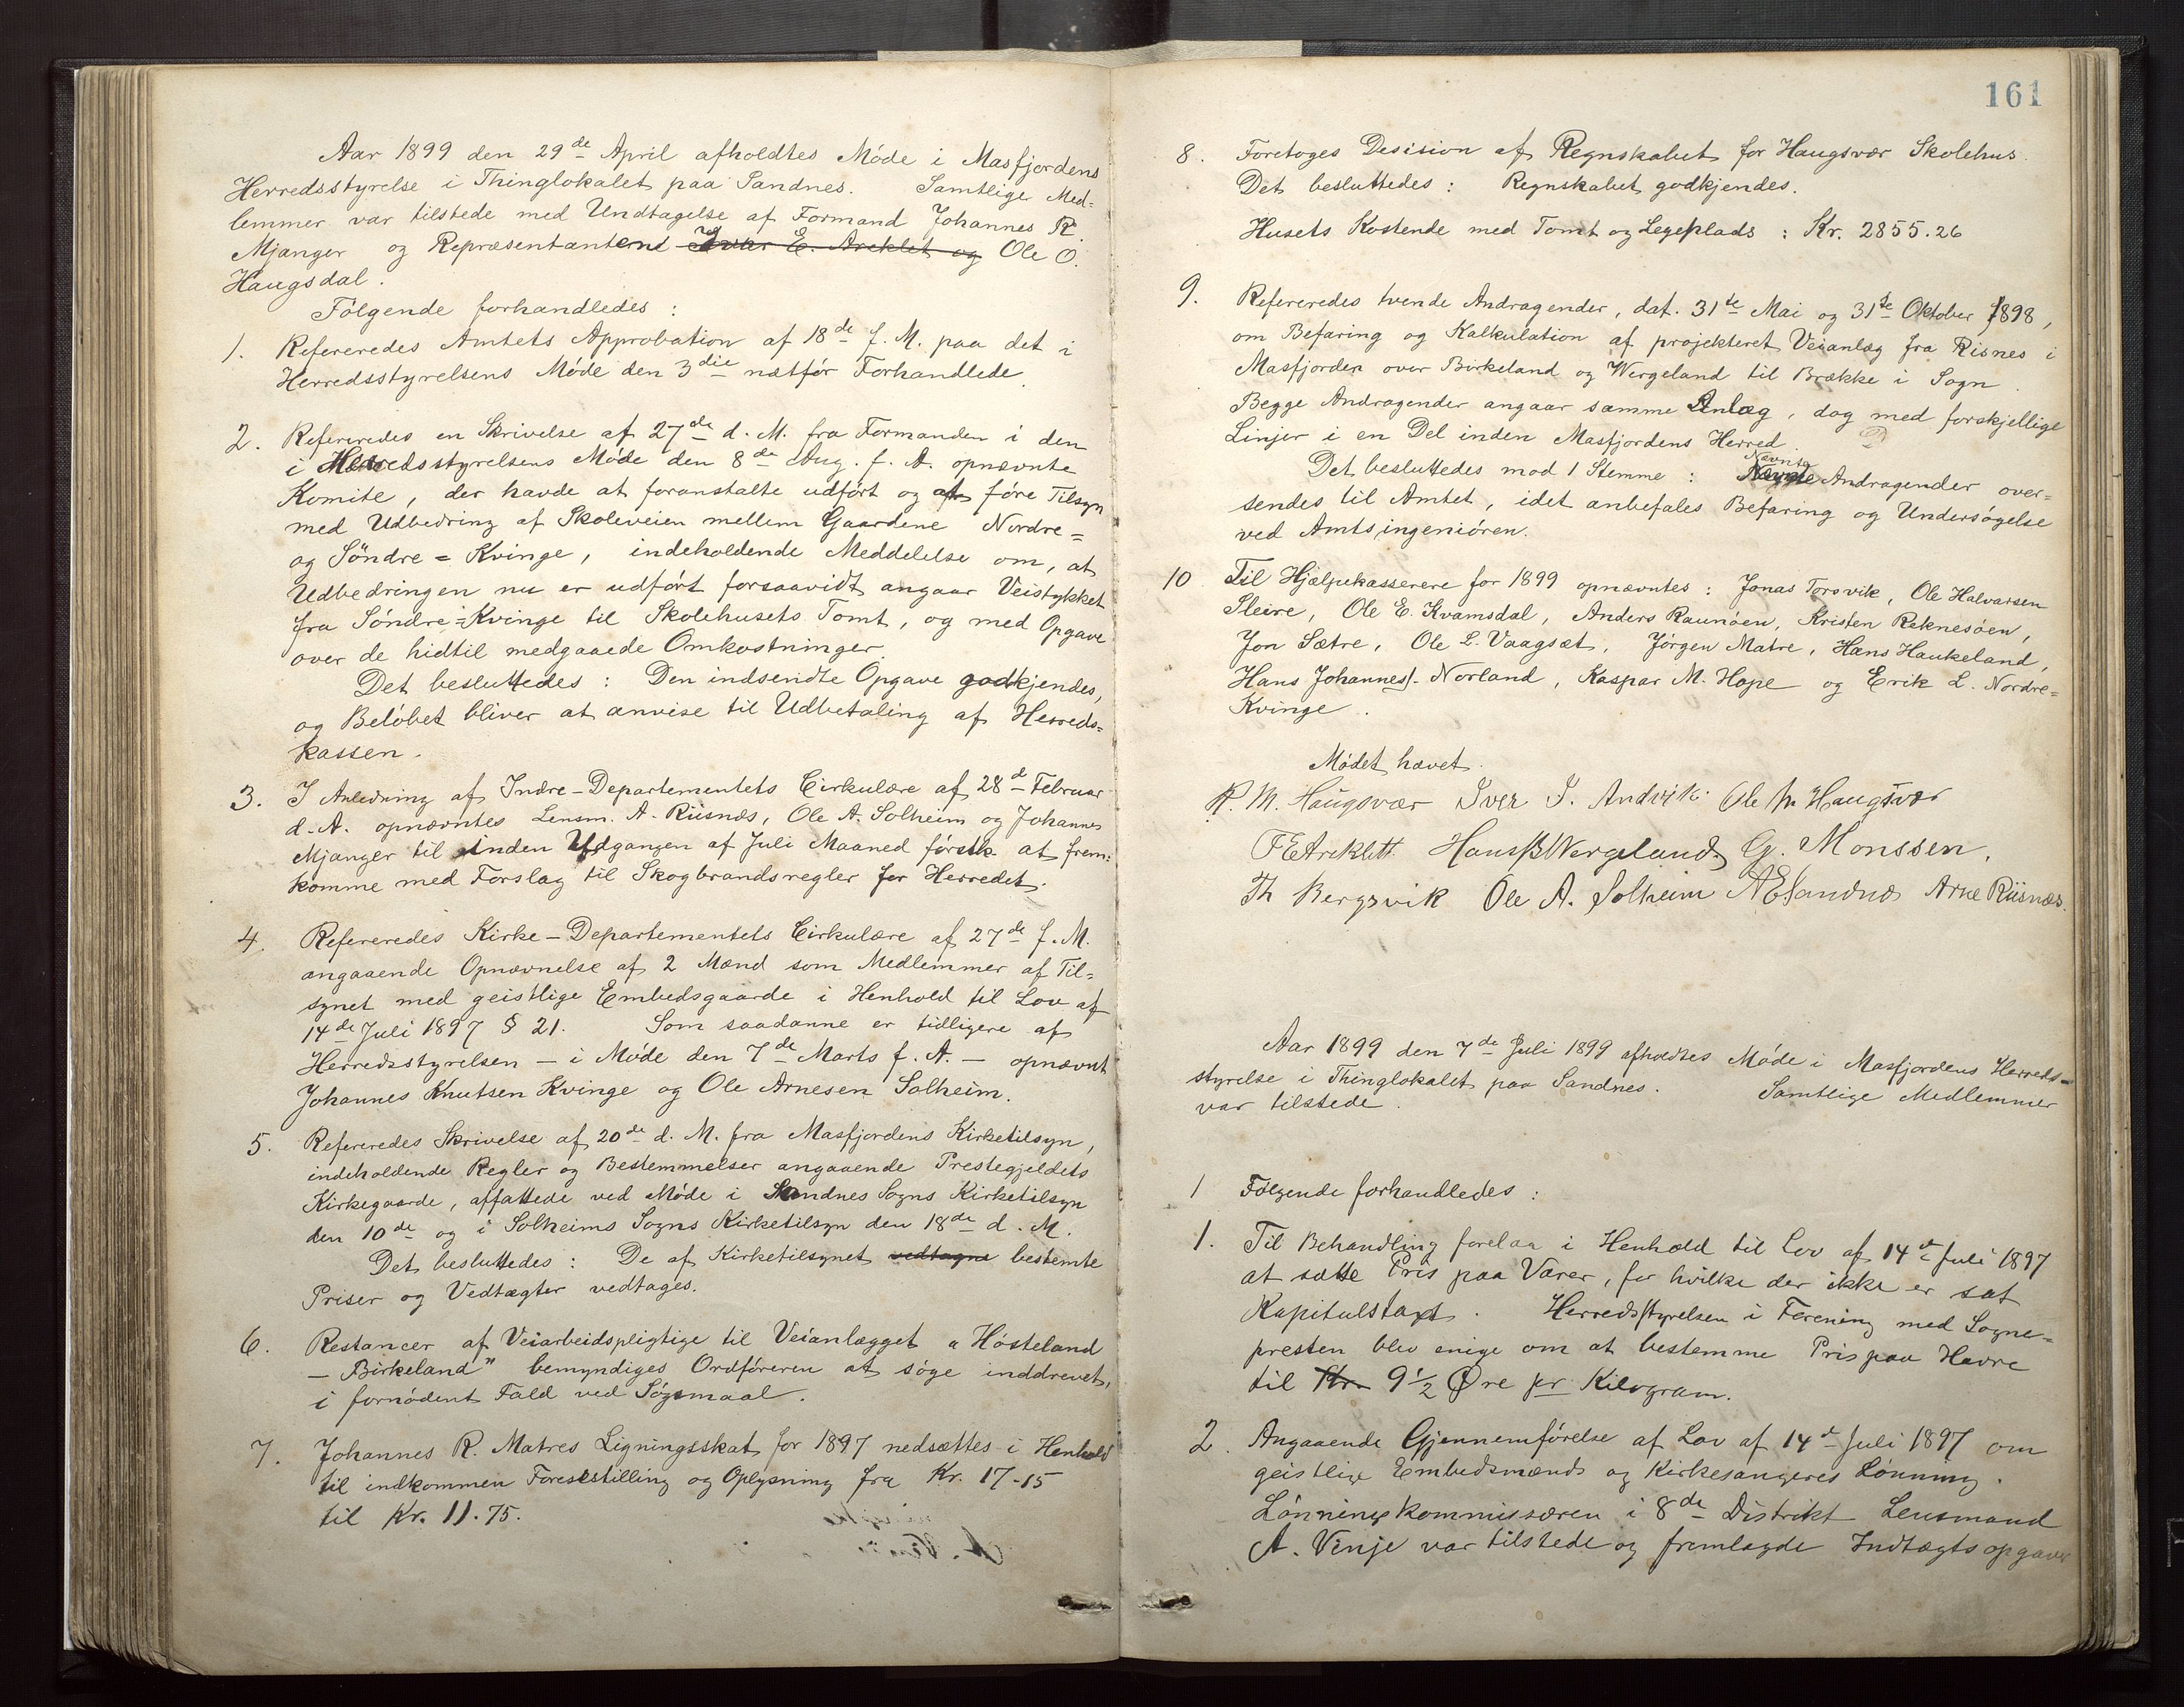 Aar 1899 den 29de April afholdtes Möde i Masfjordens
Herredsstyrelse i Thinglokalet paa Sandnes. Samtlige Med=
lemmer var tilstede med Undtagelse af Formand Johannes R.
Mjanger og Repræsentanterne Ivar E. Areklet og Ole O.
Haugsdal.
Fölgende forhandledes :
1. Refereredes Amtets Approbation af 18de f. M. paa det i
Herredsstyrelsens Möde den 3die nætför Forhandlede.
2. Refereredes en Skrivelse af 27de d. M. fra Formanden i den
i Herredsstyrelsens Möde den 8de Aug. f. A. opnævnte
Komite, der havde at foranstalte udfört og at före Tilsyn
med Udbedring af Skoleveien mellem Gaardene Nordre=
og Söndre=Kvinge, indeholdende Meddelelse om, at
Udbedringen nu er udfört forsaavidt angaar Veistykket
fra Söndre=Kvinge til Skolehusets Tomt, og med Opgave
over de hidtil medgaaede Omkostninger.
Det besluttedes : Den indsendte Opgave godkjendes,
og Belöbet bliver at anvise til Udbetaling af Herreds=
kassen.
3. I Anledning af Indre-Departementets Cirkulære af 28d Februar
d. A. opnævntes Lensm. A. Riisnæs, Ole A. Solheim og Johannes
Mjanger til inden Udgangen af Juli Maaned förstk. at frem=
komme med Forslag til Skogbrandsregler for Herredet.
4. Refereredes Kirke-Departementets Cirkulære af 27de f. M.
angaaende Opnævnelse af 2 Mænd som Medlemmer af Til=
synet med geistlige Embedsgaarde i Henhold til Lov af
14de Juli 1897 § 21. Som saadanne er tidligere af
Herredsstyrelsen – i Möde den 7de Marts f. A. – opnævnt
Johannes Knutsen Kvinge og Ole Arnesen Solheim.
5. Refereredes Skrivelse af 20de d. M. fra Masfjordens Kirketilsyn,
indeholdende Regler og Bestemmelser angaaende Prestegjeldets
Kirkegaarde, affattede ved Möde i Sandnes Sogns Kirketilsyn
den 10de og i Solheims Sogns Kirketilsyn den 18de d. M.
Det besluttedes : De af Kirketilsynet vedtagne bestemte
Priser og Vedtægter vedtages.
6. Restancer af Veiarbeidspligtige til Veianlægget „Hösteland
– Birkeland" bemyndiges Ordföreren at söge inddrevet,
i fornödent Fald ved Sögsmaal.
7. Johannes R. Matres Ligningsskat for 1897 nedsættes i Henhold
til indkommen Forestilling og Oplysning fra Kr. 17-15
til Kr. 11.75.
161
8. Foretoges Desision af Regnskabet for Haugsvær Skolehus.
Det besluttedes : Regnskabet godkjendes.
Husets Kostende med Tomt og Legeplads : Kr. 2855.26
9. Refereredes tvende Andragender, dat. 31te Mai og 31te Oktober 1898,
om Befaring og Kalkulation af projekteret Veianlæg fra Risnes i
Masfjorden over Birkeland og Wergeland til Brække i Sogn.
Begge Andragender angaar samme Anlæg, dog med forskjellige
Linjer i en Del inden Masfjordens Herred.
Nævnte
Det besluttedes mod 1 Stemme : Nævnte Andragender over=
sendes til Amtet, idet anbefales Befaring og Undersögelse
ved Amtsingeniören.
10 Til Hjælpekasserere for 1899 opnævntes : Jonas Torsvik, Ole Halvorsen
Sleire, Ole E. Kvamsdal, Anders Raunöen, Kristen Reknesöen,
Jon Sætre, Ole L. Vaagsæt, Jörgen Matre, Hans Haukeland,
Hans Johannes. Norland, Kaspar M. Hope og Erik L. Nordre=
Kvinge.
Mödet hævet.
R. M. Haugsvær Iver I. Andvik Ole M Haugsvær
I E Areklett Hans B Wergeland G. Monssen.
Th Bergsvik Ole A. Solheim A E Sandnes Arne Riisnæs.
Aar 1899 den 7de Juli 1899 afholdtes Möde i Masfjordens Herreds=
styrelse i Thinglokalet paa Sandnes. Samtlige Medlemmer
var tilstede.
1 Fölgende forhandledes :
1. Til Behandling forelaa i Henhold til Lov af 14de Juli 1897
at sætte Pris paa Varer, for hvilke der ikke er sat
Kapitulstaxt. Herredsstyrelsen i Forening med Sogne=
presten blev enige om at bestemme Pris paa Havre
til Kr. 9 1/2 Øre pr Kilogram.
2. Angaaende Gjennemförelse af Lov af 14de Juli 1897 om
geistlige Embedsmænds og Kirkesangeres Lönning.
Lönningskommissæren i 8de Distrikt Lensmand
A. Vinje var tilstede og fremlagde Indtægtsopgaver